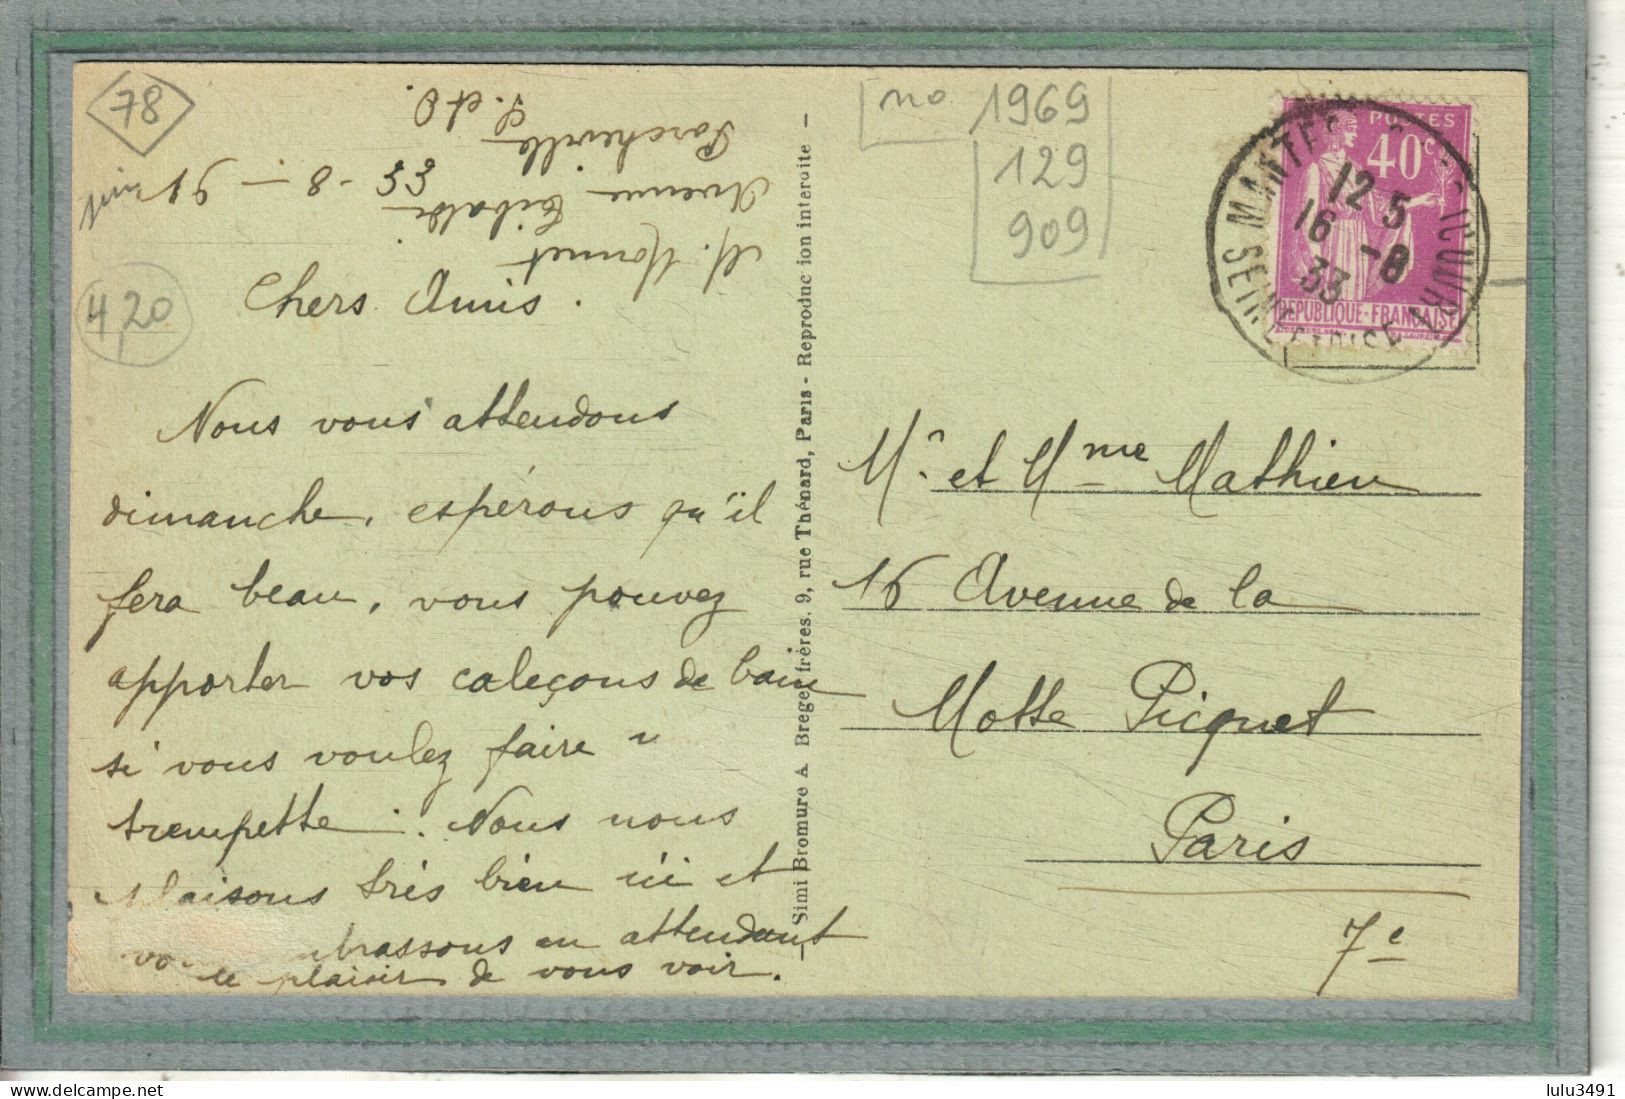 78
420
M. Monnet
Avenue
Porcheville
S. et O.
16 - 8 - 33
Chers Amis.
Nous vous attendons
dimanche, espérons qu'il
fera beau, vous pouvez
apporter vos caleçons de bain
si vous voulez faire
trempette. Nous nous
plaisons très bien ici et
brassons en attendant
le plaisir de vous voir.
Simi Bromure A. Breger frères. 9, rue Thénard, Paris - Reproduc ion interdite -
no 1969
129
909
POSTES
40c
REPUBLIQUE-FRANÇAISE
12 5
16 -8
33
Mr et Mme Mathieu
16 Avenue de la
Motte Picquet
Paris
7e
lulu3491